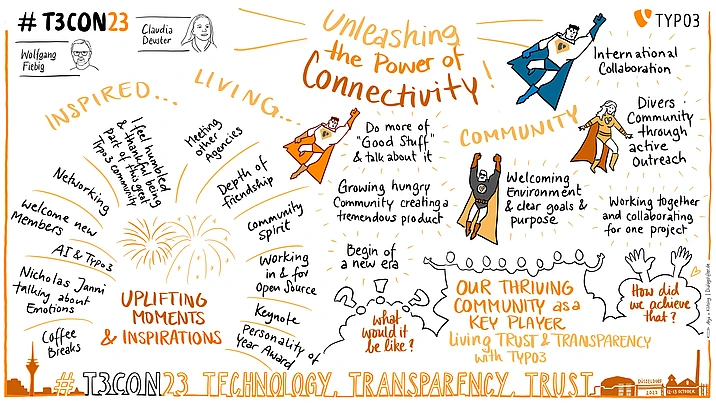 # T3CON23
Claudia
Deuter
Wolfgang
Fiebig
Unleashing
the Power of
Connectivity!
TYPO3
INSPIRED...
LIVING...
COMMUNITY
Networking
I feel humbled
& thankful being
part of this great
TYPO3 community
Meeting
other
Agencies
Depth of
friendship
welcome new
Members
AI & TYPO3
Nicholas Janni
talking about
Emotions
Coffee
Breaks
Community
Spirit
Working
in & for
Open Source
Keynote
Personality of
Year Award
UPLIFTING
MOMENTS
& INSPIRATIONS
Do more of
"Good Stuff"
& talk about it
Growing hungry
Community creating a
tremendous product
Begin of
a new era
what
would it
be like?
International
Collaboration
Divers
Community
through
active
Outreach
Welcoming
Environment
& clear goals &
purpose
Working together
and collaborating
for one project
OUR THRIVING
COMMUNITY as a
KEY PLAYER
Living TRUST & TRANSPARENCY
with TYPO3
How did
we achieve
that?
# T3CON23 TECHNOLOGY, TRANSPARENCY, TRUST
DÜSSELDORF
2023
12-13 OCTOBER